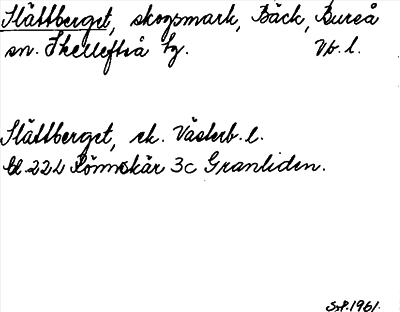 Slättberget, skogsmark, Bäck, Bureå
sn. Skellefteå tg. Vb. l.
Slättberget, ek. Västerb. l.
Bl 22L Rönnskär 3c Granliden.
1961.